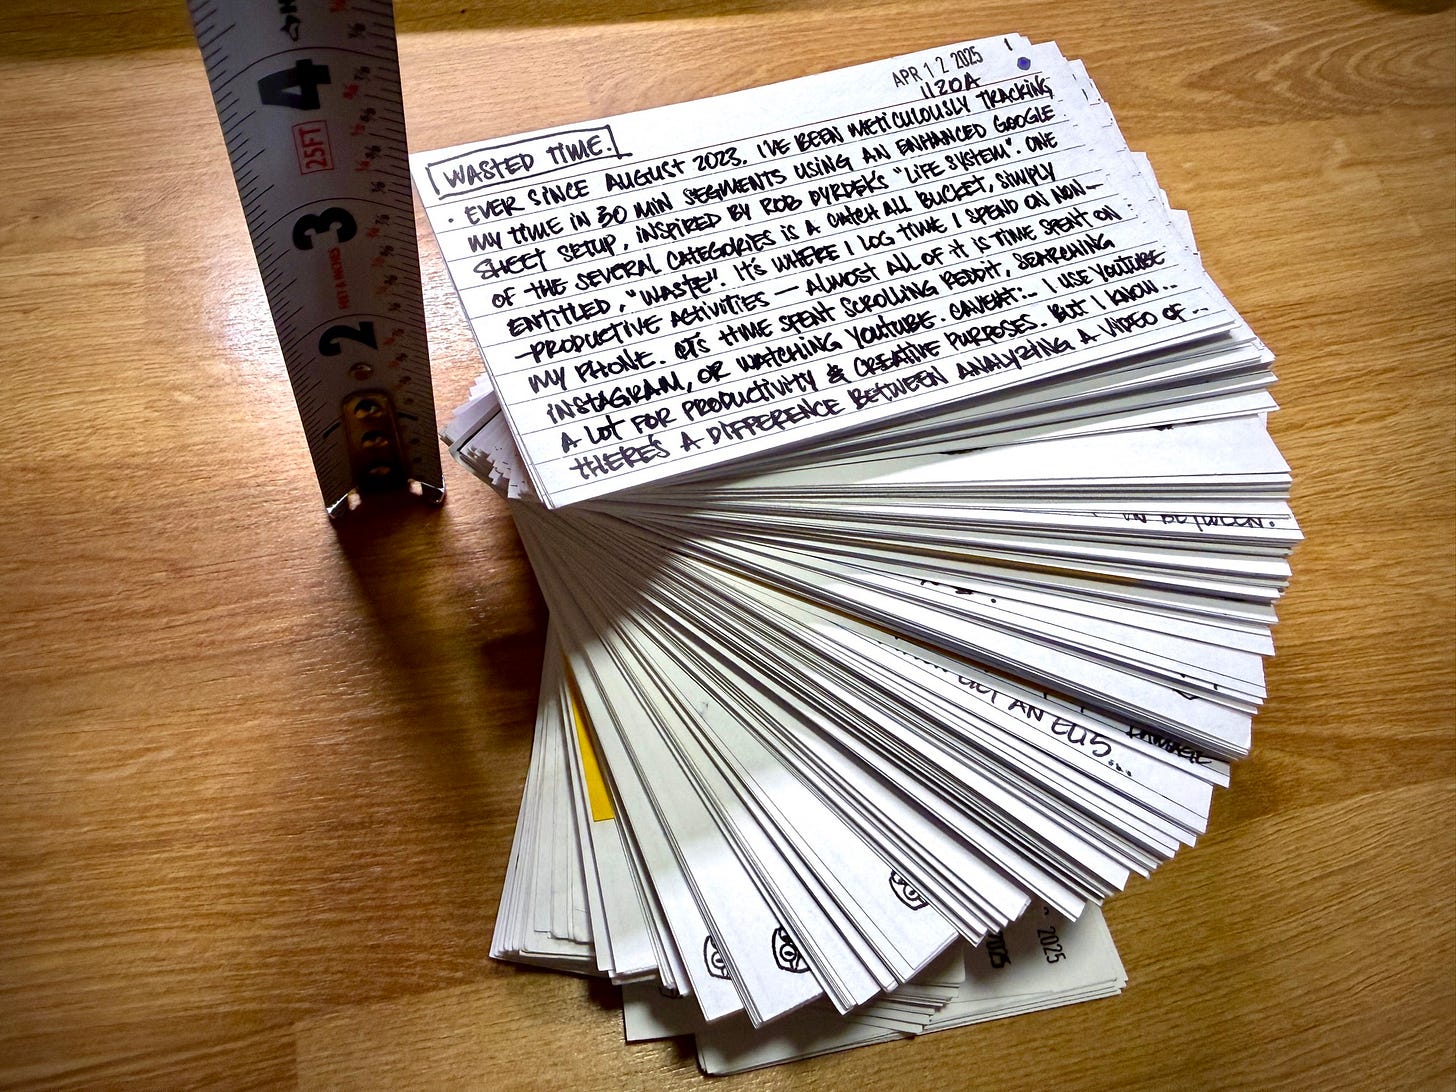 APR 12 2025 1
1120A
WASTED TIME.
· EVER SINCE AUGUST 2023. I'VE BEEN METICULOUSLY TRACKING
MY TIME IN 30 MIN SEGMENTS USING AN ENHANCED GOOGLE
SHEET SETUP, INSPIRED BY ROB DYRDEKS "LIFE SYSTEM". ONE
OF THE SEVERAL CATEGORIES IS A CATCH ALL BUCKET, SIMPLY
ENTITLED, "WASTE". IT'S WHERE I LOG TIME I SPEND ON NON-
-PRODUCTIVE ACTIVITIES — ALMOST ALL OF IT IS TIME SPENT ON
MY PHONE. IT'S TIME SPENT SCROLLING REDDIT, SEARCHING
INSTAGRAM, OR WATCHING YOUTUBE. CAVEAT:... I USE YOUTUBE
A LOT FOR PRODUCTIVITY & CREATIVE PURPOSES. BUT I KNOW...
THERE'S A DIFFERENCE BETWEEN ANALYZING A VIDEO OF...
IN BETWEEN.
AN
2025
2025
4
25FT
3
FEET & INCHES
2
1